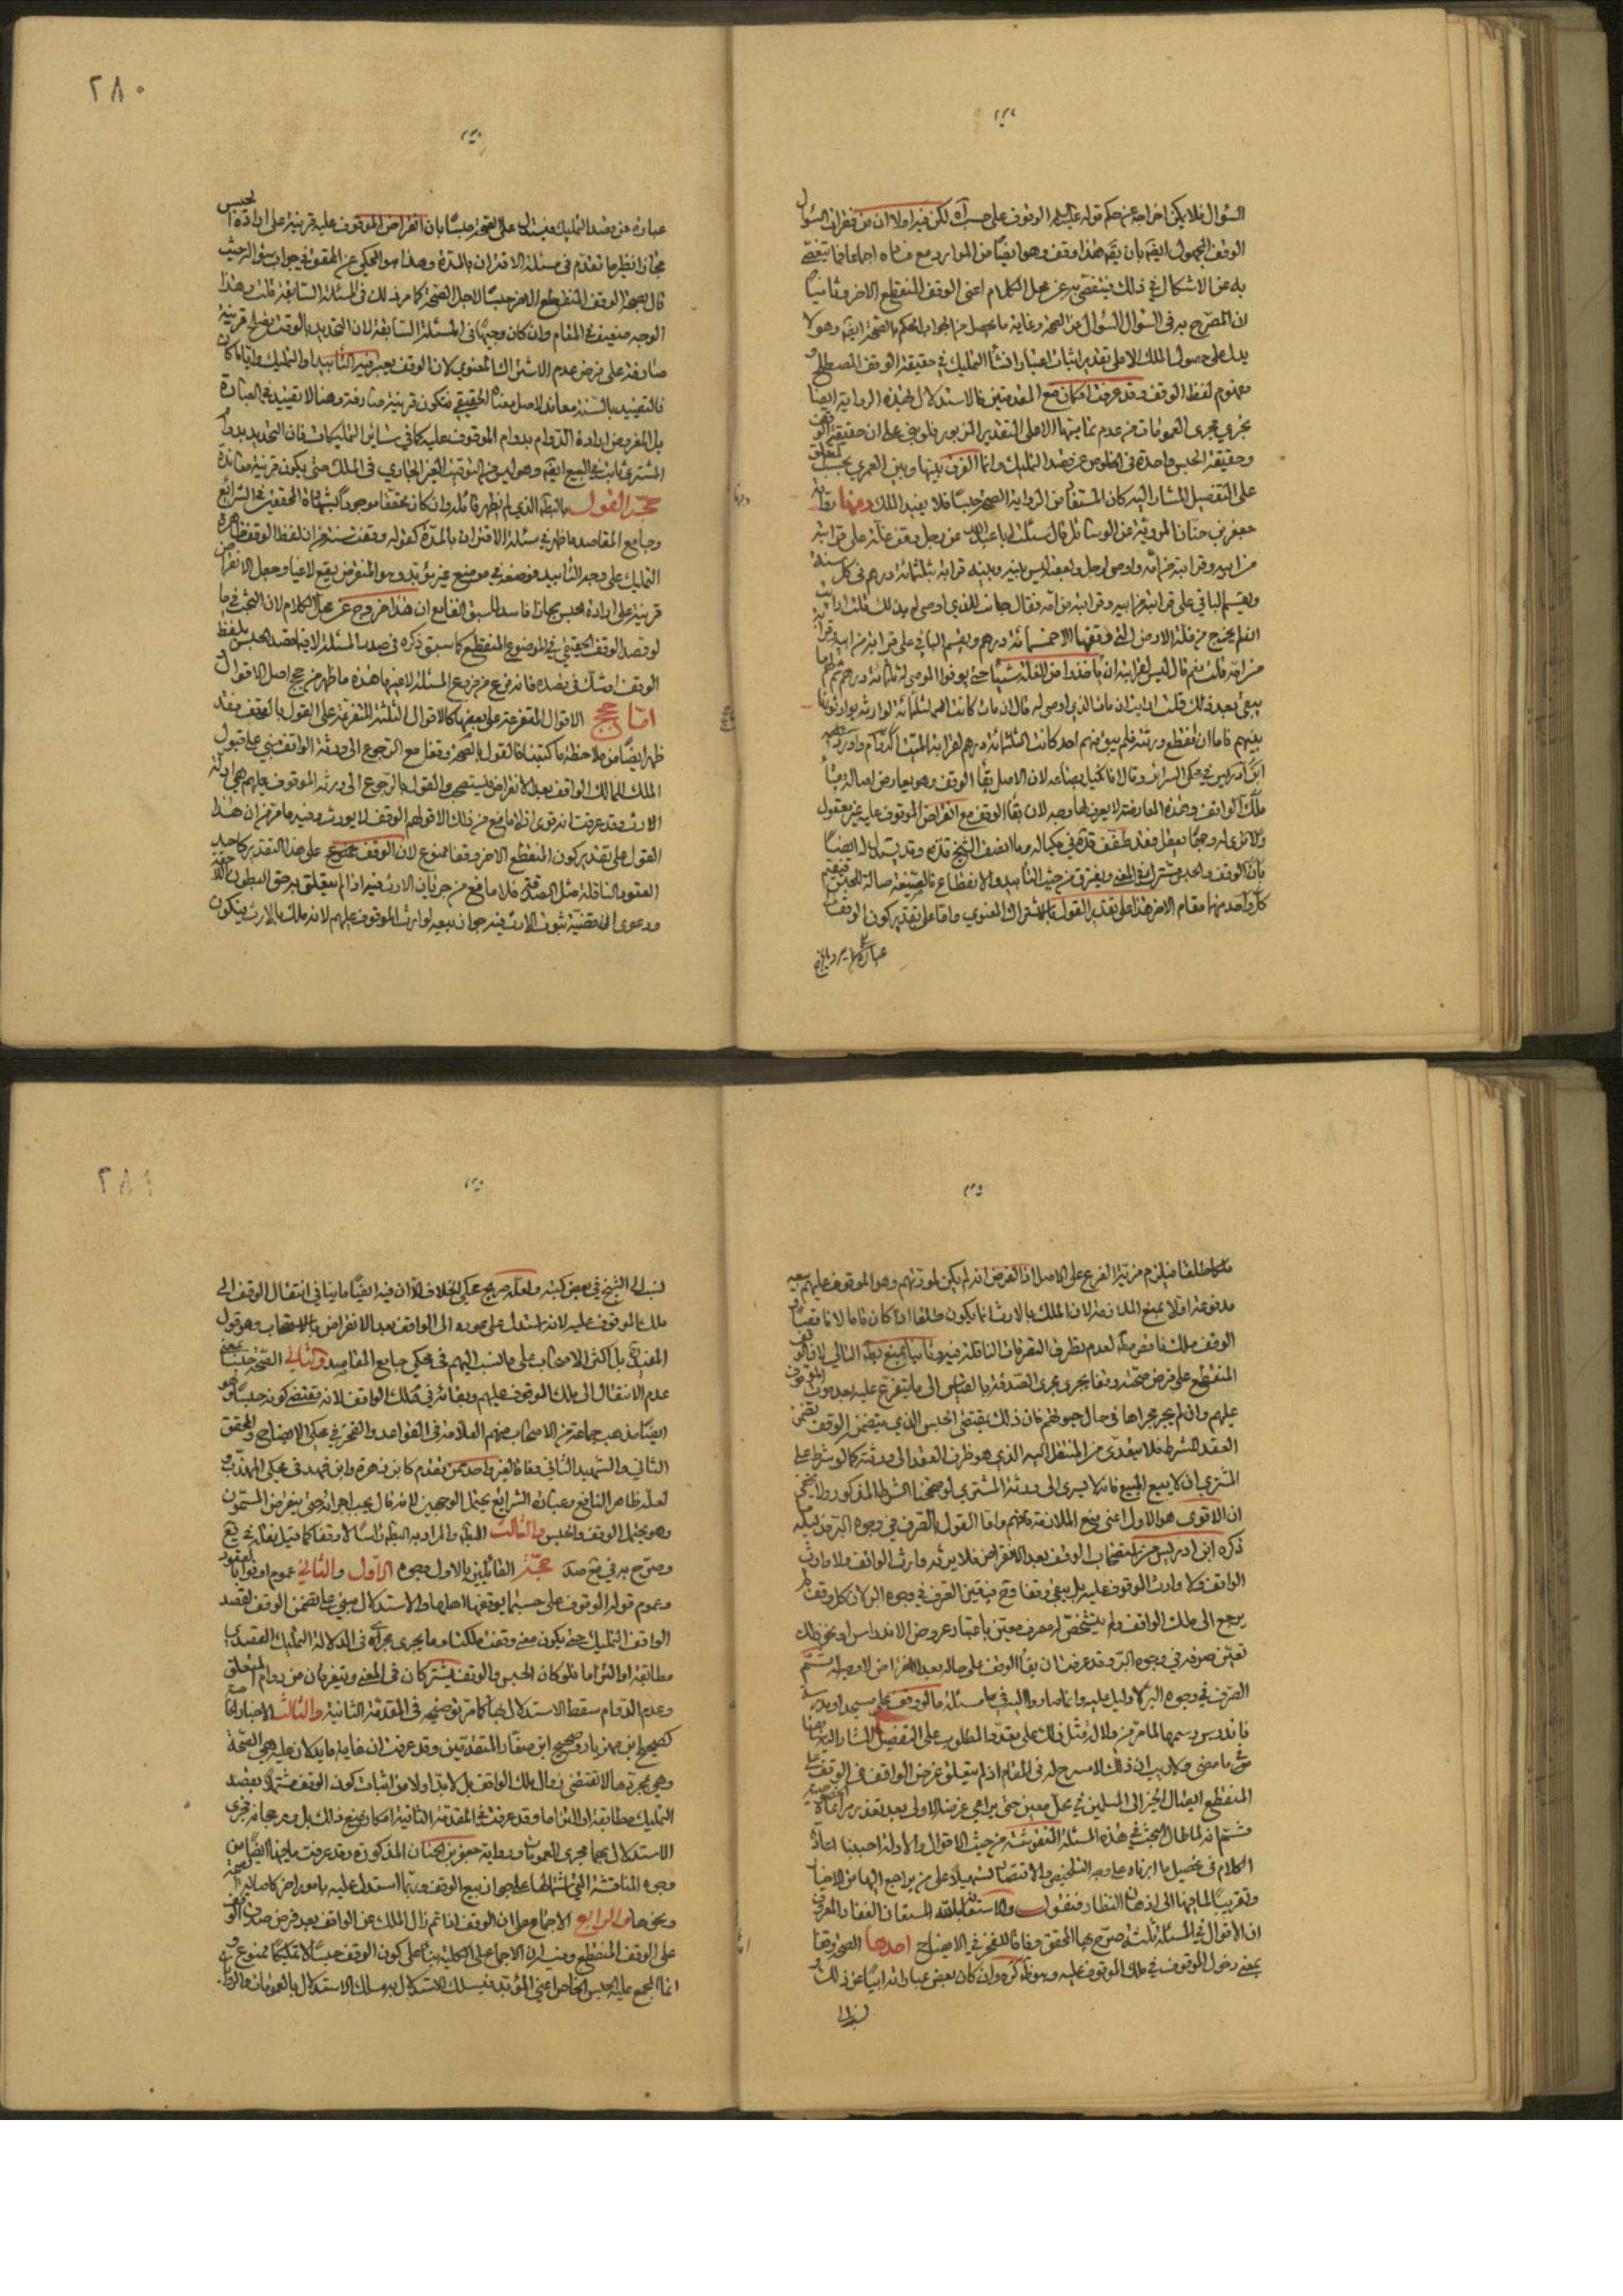 السؤال فلا يمكن اخراجه عن حكم قوله عليه السلم الوقوف على حسب آه لكن فيه اولا ان من فقرات السؤال
الوقف المجهول ايضا بان يقه هذا وقف وهو ايضا من الموارد مع فساده اجماعا فما يتفصى
به عن الاشكال في ذلك يتفصى به عن محل الكلام اعنى الوقف المنقطع الاخر وثانيا
ان المصرح به في السؤال السؤال عن الصحة وغاية ما يحصل من الجواب الحكم بالصحة ايضا وهو لا
يدل على حصول الملك الا على تقدير اثبات اعتبار انشاء التمليك في حقيقة الوقف المصطلح و
مفهوم لفظ الوقف وقد عرفت امكان منع المقدمتين فالاستدلال بهذه الرواية ايضا
يجري مجرى العمومات في عدم تماميتها الا على التقدير المزبور فلو بنى على ان حقيقة الوقف
وحقيقة الحبس واحدة في الخلوص عن قصد التمليك وانما الفرق بينها وبين العمرى بحسب المتعلق
على التفصيل المشار اليه كان المستفاد من الرواية الصحة حبسا فلا يفيد الملك ومنها رواية
جعفر بن حنان المروية عن الوسائل قال سئلت ابا عبد الله عن رجل وقف غلة على قرابته
من ابيه وقرابته من امه واوصى لرجل ولعقبه ليس بينه وبينه قرابة بثلثمائة درهم في كل سنة
ويقسم الباقي على قرابته من ابيه وقرابته من امه فقال جائز للذي اوصى له بذلك قلت ارايت
ان لم يخرج من غلة الارض التي وقفها الا خمسمائة درهم ويقسم الباقي على قرابته من ابيه وقرابته
من امه قلت نعم قال ليس لقرابته ان ياخذوا من الغلة شيئا حتى يوفوا الموصى له ثلثمائة درهم ثم لهم ما
يبقى بعد ذلك قلت ارايت ان مات الذي اوصى له قال ان مات كانت الثلثمائة لورثته يتوارثونها
بينهم فاما ان انقطع ورثته فلم يبق منهم احد كانت الثلثمائة درهم لقرابة الميت
ملك الواقف وهذه المعارضة لا يعرف لها وجه لان بقاء الوقف مع انقراض الموقوف عليه غير معقول
بان الوقف والحبس مشتركان في المعنى ويفترق من حيث التابيد والانقطاع فالصيغة صالحة للحبس فيقيم
كل واحد منهما مقام الاخر هذا على تقدير القول بالاشتراك المعنوي واما على تقدير كون الوقف
عبارة
٢٨٠
عبارة عن قصد التمليك فيستدل على الصحة حبسا بان انقراض الموقوف عليه قرينة على ارادة الحبس
مجازا نظير ما تقدم في مسئلة الاقتران بالمدة وهذا هو المحكي عن المحقق في جواب سؤاله حيث
قال بصحة الوقف المنقطع الاخر حبسا لاجل الصحة كما مر ذلك في المسئلة السابقة قلت وهذا
الوجه ضعيف في المقام وان كان وجيها في المسئلة السابقة لان التحديد بالوقت يصلح قرينة
صارفة على فرض عدم الاشتراك المعنوي لان الوقف يعتبر فيه التابيد او التمليك وايا ما كان
فالتقييد بالسنة معاند لاصل معناه الحقيقي فتكون قرينة صارفة وهنا لا تقييد في العبارة
بل المفروض ارادة الدوام بدوام الموقوف عليه كما في سائر التمليكات فان التحديد بدوام
المشترى ثابت في البيع ايضا وهو ليس من التوقيت الغير الجاري في الملك حتى يكون قرينة معاندة
حجة القول بالبطلان الذي لم نظهر قائله وان كان محققا موجودا لشهادة المحقق في الشرائع
وجامع المقاصد ما ظهر في مسئلة الاقتران بالمدة كقوله وقفت سنة من ان لفظ الوقف ظاهر في
التمليك على وجه التابيد فوضعه في موضع غير مؤبد وهو المنقرض يقع لاغيا وجعل الانقراض
قرينة على ارادة الحبس مجازا فاسد لما سبق القامع ان هذا خروج عن محل الكلام لان البحث فيما
لو قصد الوقف الحقيقي في الموضوع المنقطع كما سبق ذكره في صدر المسئلة لا فيما قصد الحبس بلفظ
الوقف او شك في قصده فانه فرع من فروع المسئلة لا عينها هذه ما ظهر من حجج اصل الاقوال
اما حجج الاقوال المتفرعة على بعضها كالاقوال الثلثة المتفرعة على القول بالوقف فقد
ظهر ايضا من ملاحظة ما كتبنا فالقول بالصحة وقفا مع الرجوع الى ورثة الواقف مبني على قبول
الملك للمالك الواقف بعد الانقراض فيستصحب والقول بالرجوع الى ورثة الموقوف عليهم هي ادلة
الارث وقد عرفت انه قوى اذ لا مانع من ذلك الا قولهم الوقف لا يورث وفيه ما مر من ان هذا
القول على تقدير كون المنقطع الاخر وقفا ممنوع لان الوقف على هذا التقدير كاحد
العقود الناقلة مثل الصدقة فلا مانع من جريان الارث فيه اذا لم يتعلق به حق البطون اللاحقة
ودعوى ان قضية ثبوت الارث فيه جواز بيعه لوارث الموقوف عليهم لانه ملك بالارث فيكون
ملكا طلقا فيلزم مزية الفرع على الاصل اذ الفرض انه لم يكن لمورثهم وهو الموقوف عليهم بيعه
مدفوعة اولا بمنع الملازمة لان الملك بالارث انما يكون طلقا اذا كان تاما لا ناقصا و
الوقف ملك ناقص لعدم تطرق التصرفات الناقلة فيه وثانيا بمنع بطلان التالي لان الوقف
المنقطع على فرض صحته وقفا يجري مجرى الصدقة بالقياس الى ما يتفرع عليه بعد موت الموقوف
عليهم وان لم يجر مجراها في حال حيوتهم فان ذلك يقتضى الحبس الذي يتضمن الوقف تضمن
العقد الشرط فلا يتعدى من المنتقل اليه الذي هو طرف العقد الى ورثته كما لو شرط على
المشترى ان لا يبيع المبيع فانه لا يسرى الى ورثة المشترى لو صححنا الشرط المذكور ولا يخفى
ان الاقوى هو الاول اعنى منع الملازمة فافهم واما القول بالصرف في وجوه البر فدليله
ذكره ابن ادريس من استصحاب الوقف بعد الانقراض فلا يرثه وارث الواقف ولا وارث
الواقف ولا وارث الموقوف عليه بل يبقى وقفا وح فيتعين الصرف في وجوه البر لان كل وقف لم
يرجع الى ملك الواقف ولم يتشخص له مصرف معين باعتبار عروض الاندراس او نحو ذلك
تعين صرفه في وجوه البر وقد عرفت ان بقاء الوقف على حاله بعد الانقراض لا وجه له ثم
الصرف في وجوه البر لا دليل عليه وانما صاروا اليه في مسئلة ما لو وقف على مسجد او مدرسة
فاندرس رسمهما لما مر من دلالة مثل ذلك على تعدد المطلوب على التفصيل المشار اليه ايضا
فيما مضى ولا ريب ان ذلك لا مسرح له في المقام اذ لم يتعلق غرض الواقف في الوقف على
المنقطع ايصال الخير الى المسلمين في محل معين حتى يراعى غرضه الاولى بعد تعذر مراعاة
ثم انه لما طال البحث في هذه المسئلة المغشوشة من حيث الاقوال والادلة احببنا اعادة
الكلام في تحصيل ما ابرناه على وجه التلخيص والاقتصار تسهيلا على من يراجع اليها من الاخيار
وتقريبا لما فيها الى اذهان النظار فنقول والاستعانة بالله المستعان الغفار المعروف
ان الاقوال في المسئلة ثلثة صرح بها المحقق وفاقا للفخر في الايضاح احدها الصحة وقفا
بمعنى دخول الموقوف في ملك الموقوف عليه وهو ظاهر وان كان بعض عباراته ابيا عن ذلك و
نسبه الى
٢٨١
نسبه الى الشيخ في بعض كتبه ولعله صريح محكي الخلاف الا ان فيه ايضا ما ينافى انتقال الوقف الى
ملك الموقوف عليه لانه استدل على عوده الى الواقف بعد الانقراض بالاستصحاب وهو قول
المفيد بل اكثر الاصحاب على ما نسب اليهم في محكي جامع المقاصد والثاني الصحة حبسا بمعنى
عدم الانتقال الى ملك الموقوف عليهم وبقائه في ملك الواقف لانه مقتضى كونه حبسا وهو
ايضا مذهب جماعة من الاصحاب منهم العلامة في القواعد والفخر في محكي الايضاح والمحقق
الثاني والشهيد الثاني وفاقا لغير واحد ممن تقدم كابن زهرة وابن فهد في محكي المهذب و
لعله ظاهر النافع وعبارة الشرائع يحتمل الوجهين لانه قال يجب اجرائه حتى ينقرض المسمون
وهو يحتمل الوقف والحبس والثالث البطلان والمراد به البطلان راسا لا وقفا كما قيل
وصرح به في مع صد حجة القائلين بالاول وجوه الاول والثاني عموم اوفوا بالعقود
وعموم قوله الوقوف على حسب ما يوقفها اهلها والاستدلال مبني على تضمن الوقف لقصد
الواقف التمليك حتى يكون معنى وقفت ملكت او ما يجرى مجراه في الدلالة التمليك القصدى
مطابقة او التزاما فلو كان الحبس والوقف يشتركان في المعنى ويفترقان من دوام المتعلق
وعدم الدوام سقط الاستدلال بها كما مر توضيحه في المقدمة الثانية والثالث الاخبار الخاصة
كصحيح ابن مهزيار وصحيح ابن صفار المتقدمتين وقد عرفت ان غاية ما يدلان عليه هي الصحة
وهي بمجردها لا تقتضى زوال ملك الواقف بل لا بد اولا من اثبات كون الوقف مشتملا بقصد
التمليك مطابقة او التزاما وقد عرفت في المقدمة الثانية امكان منع ذلك بل ورجحانه فجرى
الاستدلال بهما مجرى العمومات ورواية جعفر بن الحنان المذكورة وقد عرفت ما فيها ايضا من
وجوه المناقشة التي منها اشتمالها على جواز بيع الوقف وربما استدل عليه بامور اخر كاصالة الصحة
ونحوها والرابع الاجماع على ان الوقف اذا تم زال الملك عن الواقف بعد فرض صدق الوقف
على الوقف المنقطع وفيه ان الاجماع على الكلية بناء على كون الوقف حبسا لا تمليكا ممنوع و
انما المجمع عليه الحبس الخاص اعنى المؤبد فيسلك الاستدلال به مسلك الاستدلال بالعمومات والروايات